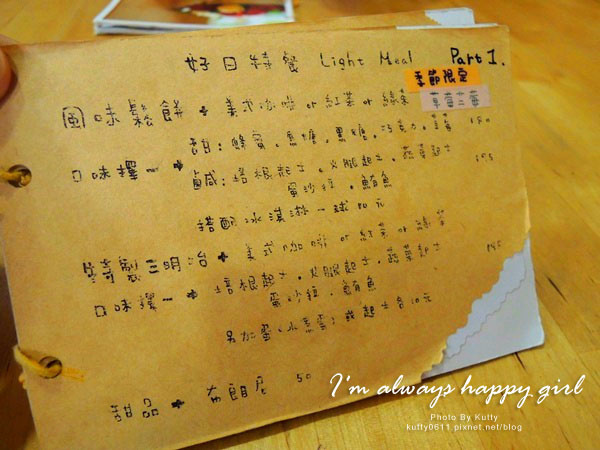 好日特餐 Light Meal Part 1.
季節限定
風味鬆餅 + 美式咖啡 or 紅茶 or 綠茶
口味擇一 + 甜：蜂蜜。黑糖。巧克力。 180
鹹：培根起士。火腿起士。蔬菜起士 195
蛋沙拉。鮪魚
搭配冰淇淋一球 10元
特製三明治 + 美式咖啡 or 紅茶 or 綠茶
口味擇一 + 培根起士。火腿起士。蔬菜起士 195
蛋沙拉。鮪魚
另加蛋(水煮蛋) 或起士各10元
甜品 + 布朗尼 50
I'm always happy girl
Photo By Kutty
kutty0611.pixnet.net/blog